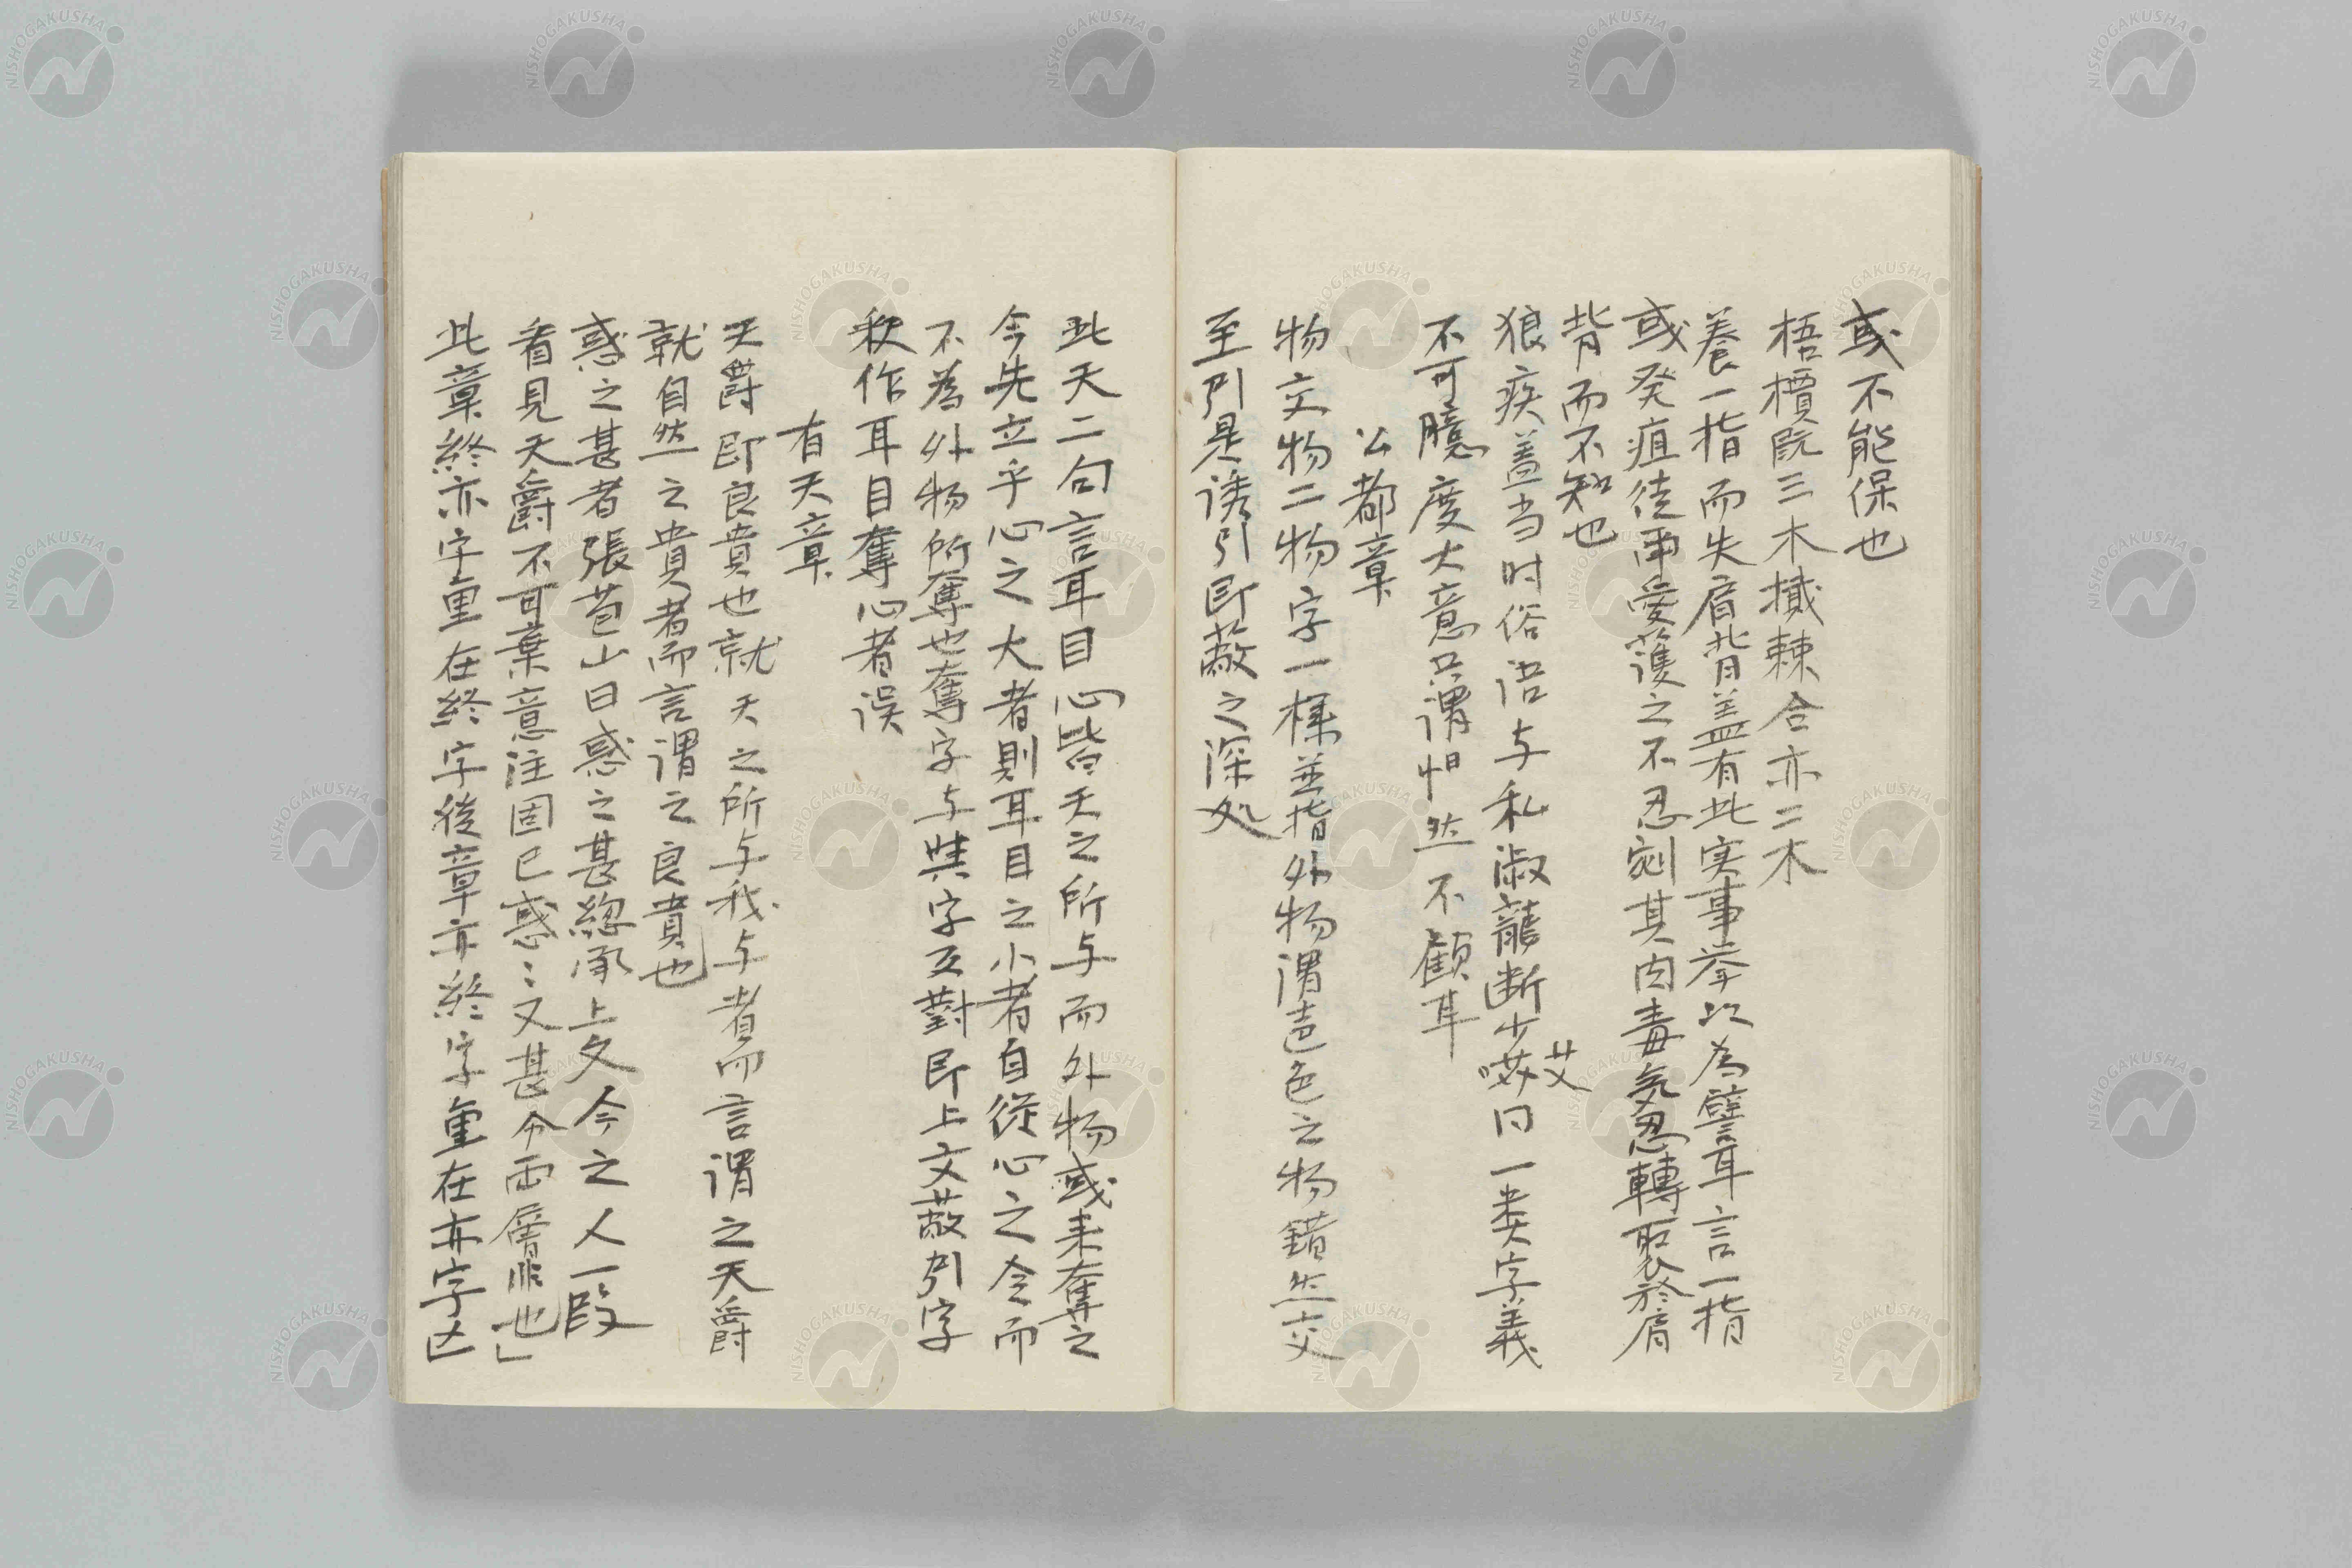 或不能保也
梧檟既三木樲棘合亦二木
養一指而失肩背盖有此実事挙以為譬耳言一指
或発疽徒畄愛護之不忍割其肉毒気忽轉聚於肩
背而不知也
狼疾盖当时俗语与私淑龍断少艾同一类字義
艾
不可臆度大意只謂怛然不顧耳
公都章
物交物二物字一様並指外物謂声色之物錯然交
至引是誘引即蔽之深処
此天二句言耳目心皆天之所与而外物或来奪之
今先立乎心之大者則耳目之小者自従心之令而
不為外物所奪也奪字与與字互對即上文蔽引字
秋作耳目奪心者误
有天章
天爵即良貴也就天之所与我与者而言謂之天爵
就自然之貴者而言謂之良貴也
惑之甚者張苞山曰惑之甚総承上文今之人一段
看見天爵不可棄意注固已惑〻又甚分両層非也」
此章終亦字重在終字後章亦終字重在亦字」